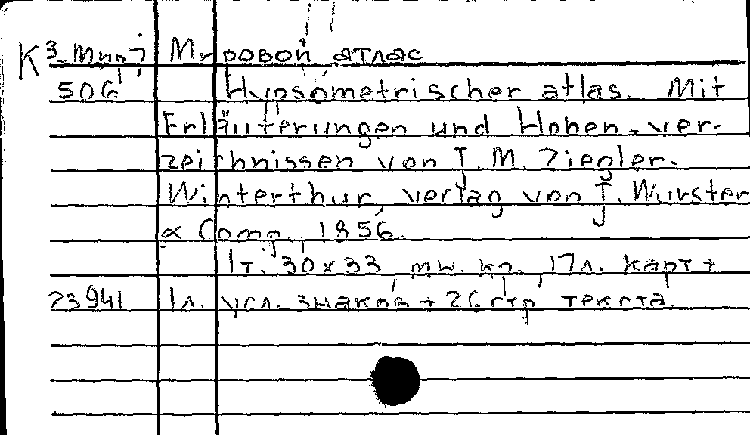 К3-Мир Мировой атлас
506 Hypsometrischer atlas. Mit
Erläuterungen und Hohen-ver-
zeichnissen von J. M. Ziegler.
Winterthur, verlag von J. Wurster
& Comp., 1856.
1т. 30x33 тж. кр. 17л. карт +
23941 1л. усл. знаков + 26 стр. текста.